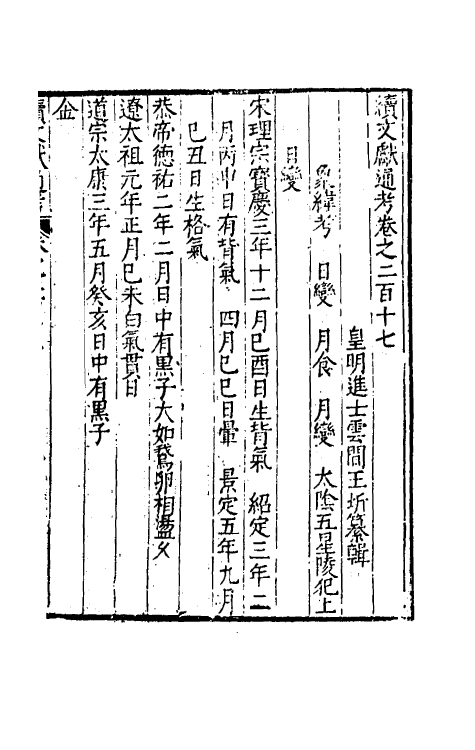 續文獻通考卷之二百十七
皇明進士雲間王圻纂輯
象緯考 日變 月食 月變 太陰五星陵犯上
日變
宋理宗寶慶三年十二月己酉日生背氣 紹定三年二
月丙申日有背氣 四月己巳日暈 景定五年九月
己丑日生格氣
恭帝德祐二年二月日中有黑子大如鵞卵相盪
遼太祖元年正月己未白氣貫日
道宗太康三年五月癸亥日中有黑子
金
續文獻通考